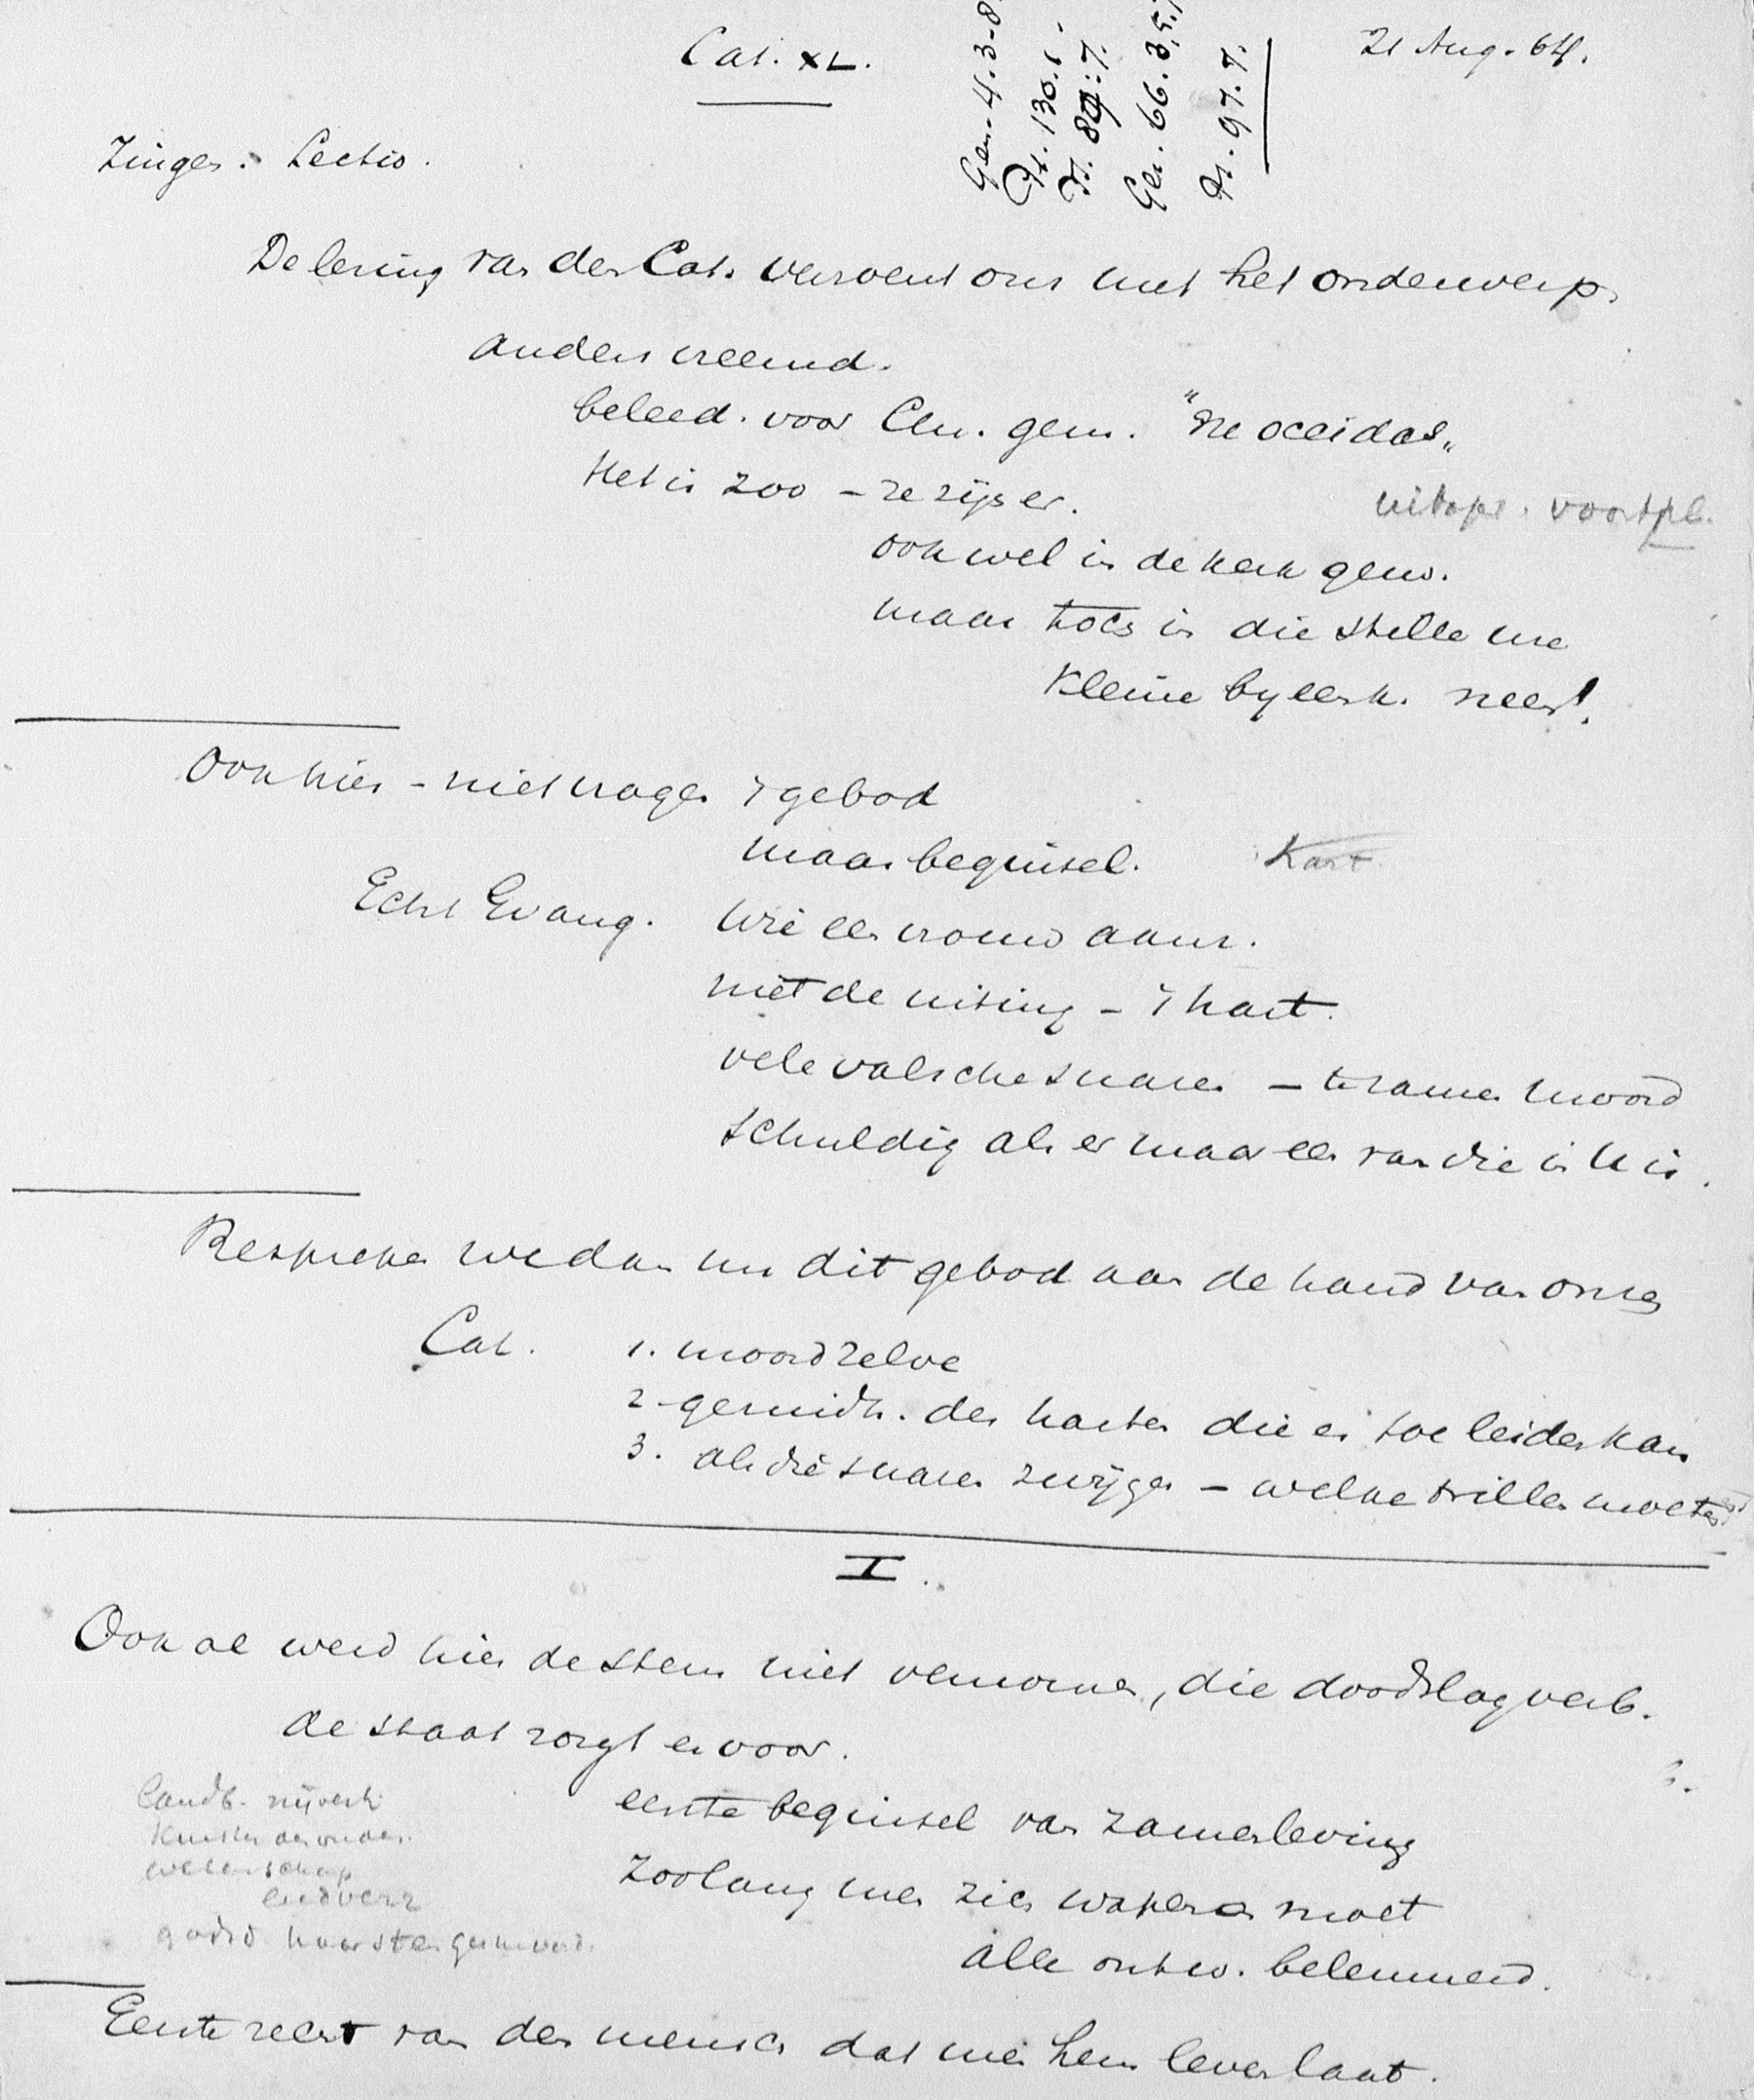 Cat. XL.
21 Aug. 64.
Gez. 4. 3-8
Ps. 130. 1.
Ps. 89:7.
Gez. 66. 3,5,
Ps. 97. 7.
Zingen. Lectio.
De lezing van den Cat. verveelt ons met het onderwerp.
anders vreemd.
beleed. voor Chr. gem. "Ne occidas"
Het is zoo – ze zijn er.
uitspr. voortpl.
ook wel in de kerk gew.
maar toch in die stille
kleine byeenk. neen!
Ook hier – niet vragen 't gebod
maar beginsel.
Kant
Echt Evang. wie een vrouw aanz.
niet de uiting – 't hart.
vele valsche snaren – te zamen moord
schuldig als er maar een van die in U is.
Bespreken we dan nu dit gebod aan de hand van onzen
Cat.
1. moord zelve
2. gezindh. des harten die er toe leiden kan
3. als die snaren zwijgen – welke trillen moeten
I.
Ook al werd hier de stem niet vernomen, die doodslag verb.
de staat zorgt er voor.
eerste beginsel van zamenleving
Landb. nijverh.
Kunsten
wetenschap
zoolang men zich wapenen moet
godsd.
alle ontw. belemmerd.
Eerste recht van den mensch dat men hem leven laat.